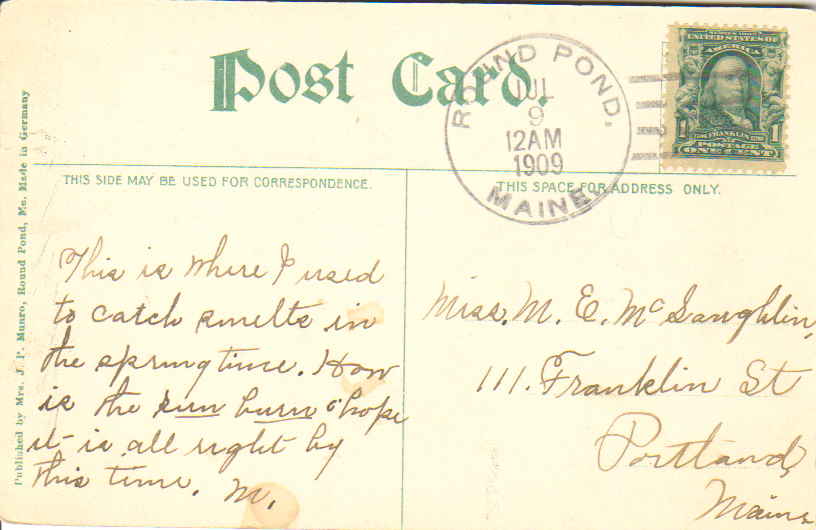 Post Card.
ROUND POND,
JUL
9
12AM
1909
MAINE.
UNITED STATES OF
AMERICA
1
FRANKLIN
POSTAGE
ONE CENT
1
THIS SIDE MAY BE USED FOR CORRESPONDENCE.
THIS SPACE FOR ADDRESS ONLY.
Published by Mrs. J. P. Munro, Round Pond, Me. Made in Germany
This is where I used
to catch smelts in
the springtime. How
is the sun burn I hope
it is all right by
this time. M.
Miss. M. E. McLaughlin,
111. Franklin St
Portland,
Maine